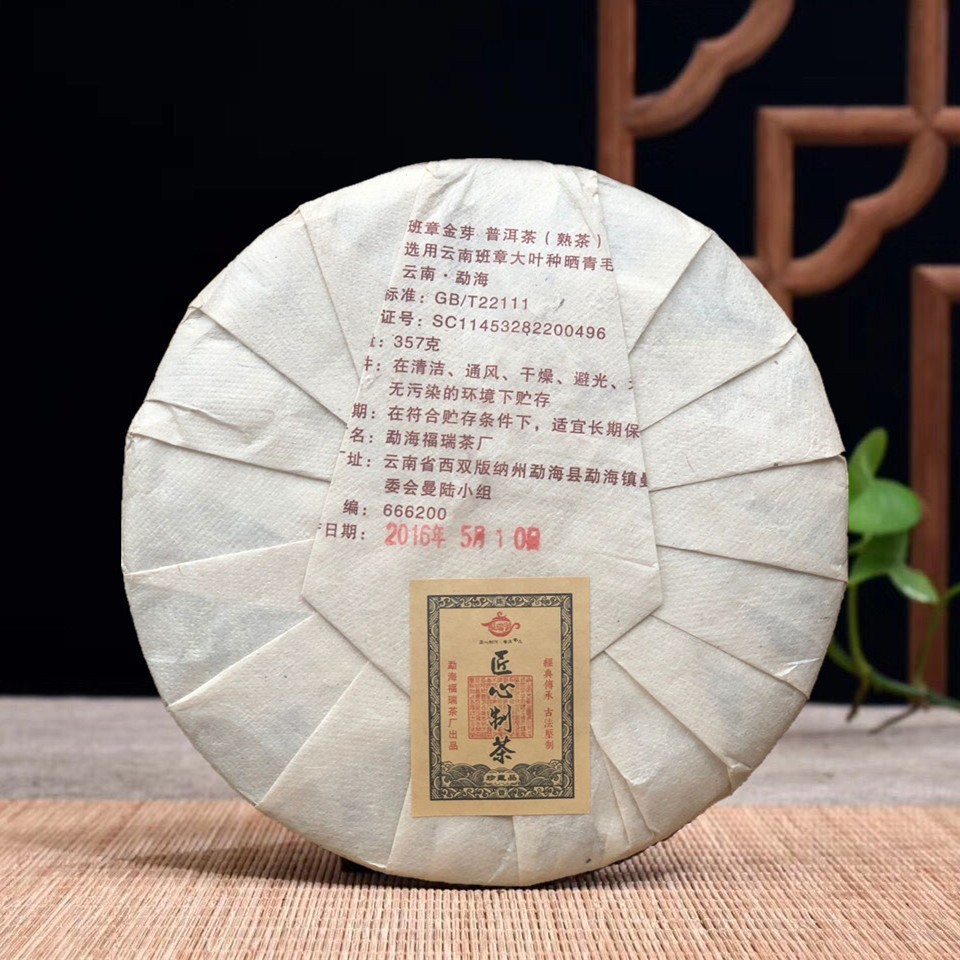 班章金芽 普洱茶（熟茶）
选用云南班章大叶种晒青毛
云南·勐海
标准：GB/T22111
证号：SC11453282200496
：357克
件：在清洁、通风、干燥、避光、
无污染的环境下贮存
期：在符合贮存条件下，适宜长期保
名：勐海福瑞茶厂
址：云南省西双版纳州勐海县勐海镇曼
委会曼陆小组
编：666200
日期：2016年 5月10日
匠心制茶
經典傳承 古法壓制
勐海福瑞茶厂出品
珍藏品